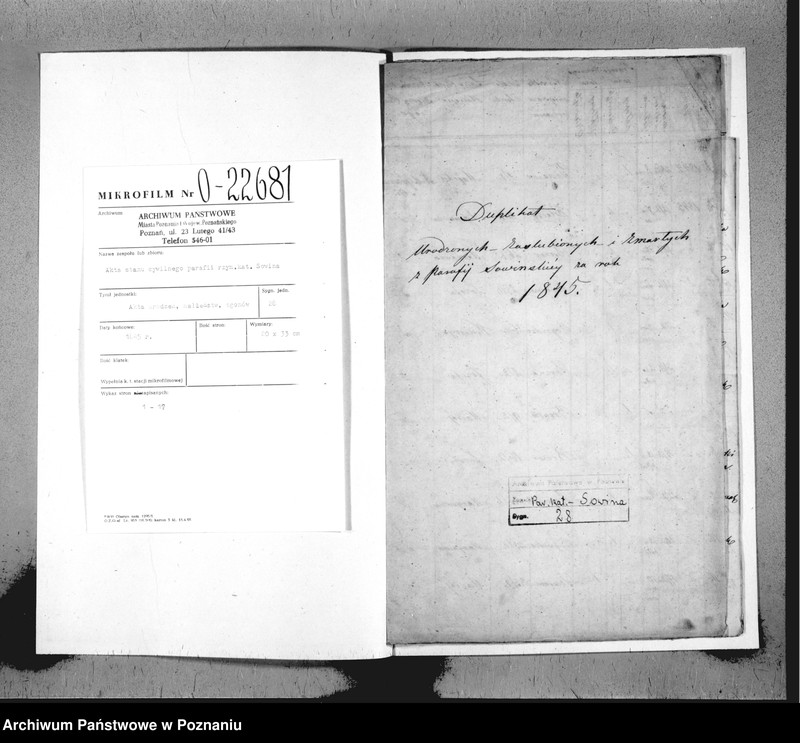 MIKROFILM Nr O-22681
Archiwum
ARCHIWUM PAŃSTWOWE
Miasta Poznania i Województwa Poznańskiego
Poznań, ul. 23 Lutego 41/43
Telefon 546-01
Nazwa zespołu lub zbioru:
Akta stanu cywilnego parafii rzym.kat. Sowina
Tytuł jednostki:
Sygn. jedn.
Akta urodzeń, małżeństw, zgonów
28
Daty końcowe:
Ilość stron:
Wymiary:
1845 r.
20 x 33 cm
Ilość klatek:
Wypełnia k. t. stacji mikrofilmowej
Wykaz stron
1 - 17
Duplikat
Urodzonych - Zaslubionych i Zmarłych
z Parafij Sowinskiéy za rok
1845.
Archiwum Państwowe w Poznaniu
Par. kat. - Sowina
Sygn. 28
Archiwum Państwowe w Poznaniu